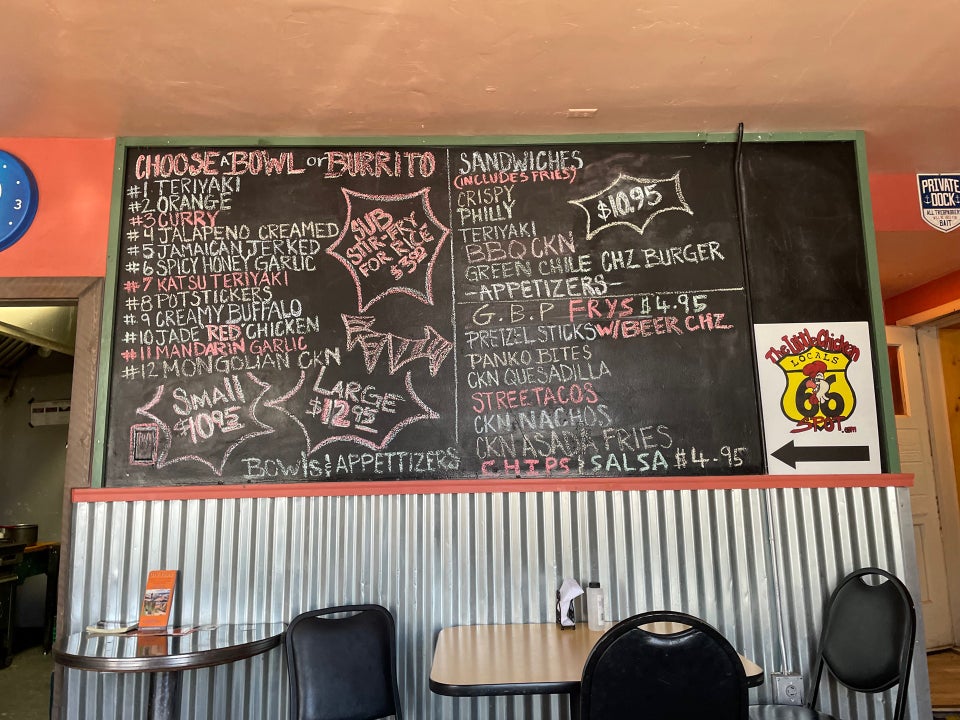 CHOOSE A BOWL or BURRITO
#1 TERIYAKI
#2 ORANGE
#3 CURRY
#4 JALAPENO CREAMED
#5 JAMAICAN JERKED
#6 SPICY HONEY GARLIC
#7 KATSU TERIYAKI
#8 POTSTICKERS
#9 CREAMY BUFFALO
#10 JADE RED CHICKEN
#11 MANDARIN GARLIC
#12 MONGOLIAN CKN
SUB
STIR-FRY
FOR RICE
$3.95
SMALL
$10.95
LARGE
$12.95
BOWLS & APPETIZERS
SANDWICHES
(INCLUDES FRIES)
CRISPY
PHILLY
TERIYAKI
BBQ CKN
GREEN CHILE CHZ BURGER
$10.95
-APPETIZERS-
G.B.P FRYS $4.95
PRETZEL STICKS W/BEER CHZ
PANKO BITES
CKN QUESADILLA
STREETACOS
CKN NACHOS
CKN ASADA FRIES
CHIPS & SALSA $4.95
The Little Chicken
LOCALS
66
SPOT.com
PRIVATE
DOCK
ALL TRESPASSERS
BAIT
3